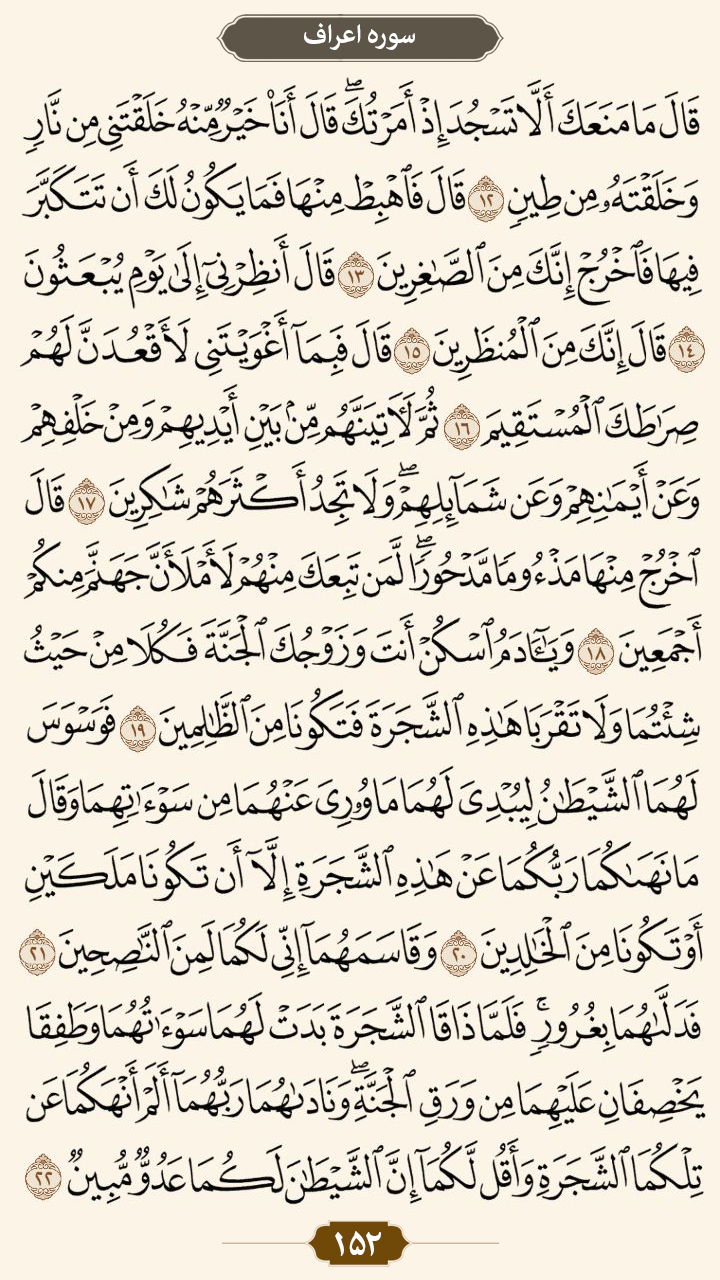 سوره اعراف
قَالَ مَا مَنَعَكَ أَلَّا تَسْجُدَ إِذْ أَمَرْتُكَ ۖ قَالَ أَنَا۠ خَيْرٌ مِّنْهُ خَلَقْتَنِي مِن نَّارٍ
وَخَلَقْتَهُۥ مِن طِينٍ ١٢ قَالَ فَٱهْبِطْ مِنْهَا فَمَا يَكُونُ لَكَ أَن تَتَكَبَّرَ
فِيهَا فَٱخْرُجْ إِنَّكَ مِنَ ٱلصَّٰغِرِينَ ١٣ قَالَ أَنظِرْنِىٓ إِلَىٰ يَوْمِ يُبْعَثُونَ
١٤ قَالَ إِنَّكَ مِنَ ٱلْمُنظَرِينَ ١٥ قَالَ فَبِمَآ أَغْوَيْتَنِى لَأَقْعُدَنَّ لَهُمْ
صِرَٰطَكَ ٱلْمُسْتَقِيمَ ١٦ ثُمَّ لَـَٔاتِيَنَّهُم مِّنۢ بَيْنِ أَيْدِيهِمْ وَمِنْ خَلْفِهِمْ
وَعَنْ أَيْمَٰنِهِمْ وَعَن شَمَآئِلِهِمْ ۖ وَلَا تَجِدُ أَكْثَرَهُمْ شَٰكِرِينَ ١٧ قَالَ
ٱخْرُجْ مِنْهَا مَذْءُومًا مَّدْحُورًا ۖ لَّمَن تَبِعَكَ مِنْهُمْ لَأَمْلَأَنَّ جَهَنَّمَ مِنكُمْ
أَجْمَعِينَ ١٨ وَيَٰٓـَٔادَمُ ٱسْكُنْ أَنتَ وَزَوْجُكَ ٱلْجَنَّةَ فَكُلَا مِنْ حَيْثُ
شِئْتُمَا وَلَا تَقْرَبَا هَٰذِهِ ٱلشَّجَرَةَ فَتَكُونَا مِنَ ٱلظَّٰلِمِينَ ١٩ فَوَسْوَسَ
لَهُمَا ٱلشَّيْطَٰنُ لِيُبْدِىَ لَهُمَا مَا وُۥرِىَ عَنْهُمَا مِن سَوْءَٰتِهِمَا وَقَالَ
مَا نَهَىٰكُمَا رَبُّكُمَا عَنْ هَٰذِهِ ٱلشَّجَرَةِ إِلَّآ أَن تَكُونَا مَلَكَيْنِ
أَوْ تَكُونَا مِنَ ٱلْخَٰلِدِينَ ٢٠ وَقَاسَمَهُمَآ إِنِّى لَكُمَا لَمِنَ ٱلنَّٰصِحِينَ ٢١
فَدَلَّىٰهُمَا بِغُرُورٍ ۚ فَلَمَّا ذَاقَا ٱلشَّجَرَةَ بَدَتْ لَهُمَا سَوْءَٰتُهُمَا وَطَفِقَا
يَخْصِفَانِ عَلَيْهِمَا مِن وَرَقِ ٱلْجَنَّةِ ۖ وَنَادَىٰهُمَا رَبُّهُمَآ أَلَمْ أَنْهَكُمَا عَن
تِلْكُمَا ٱلشَّجَرَةِ وَأَقُل لَّكُمَآ إِنَّ ٱلشَّيْطَٰنَ لَكُمَا عَدُوٌّ مُّبِينٌ ٢٢
۱۵۲